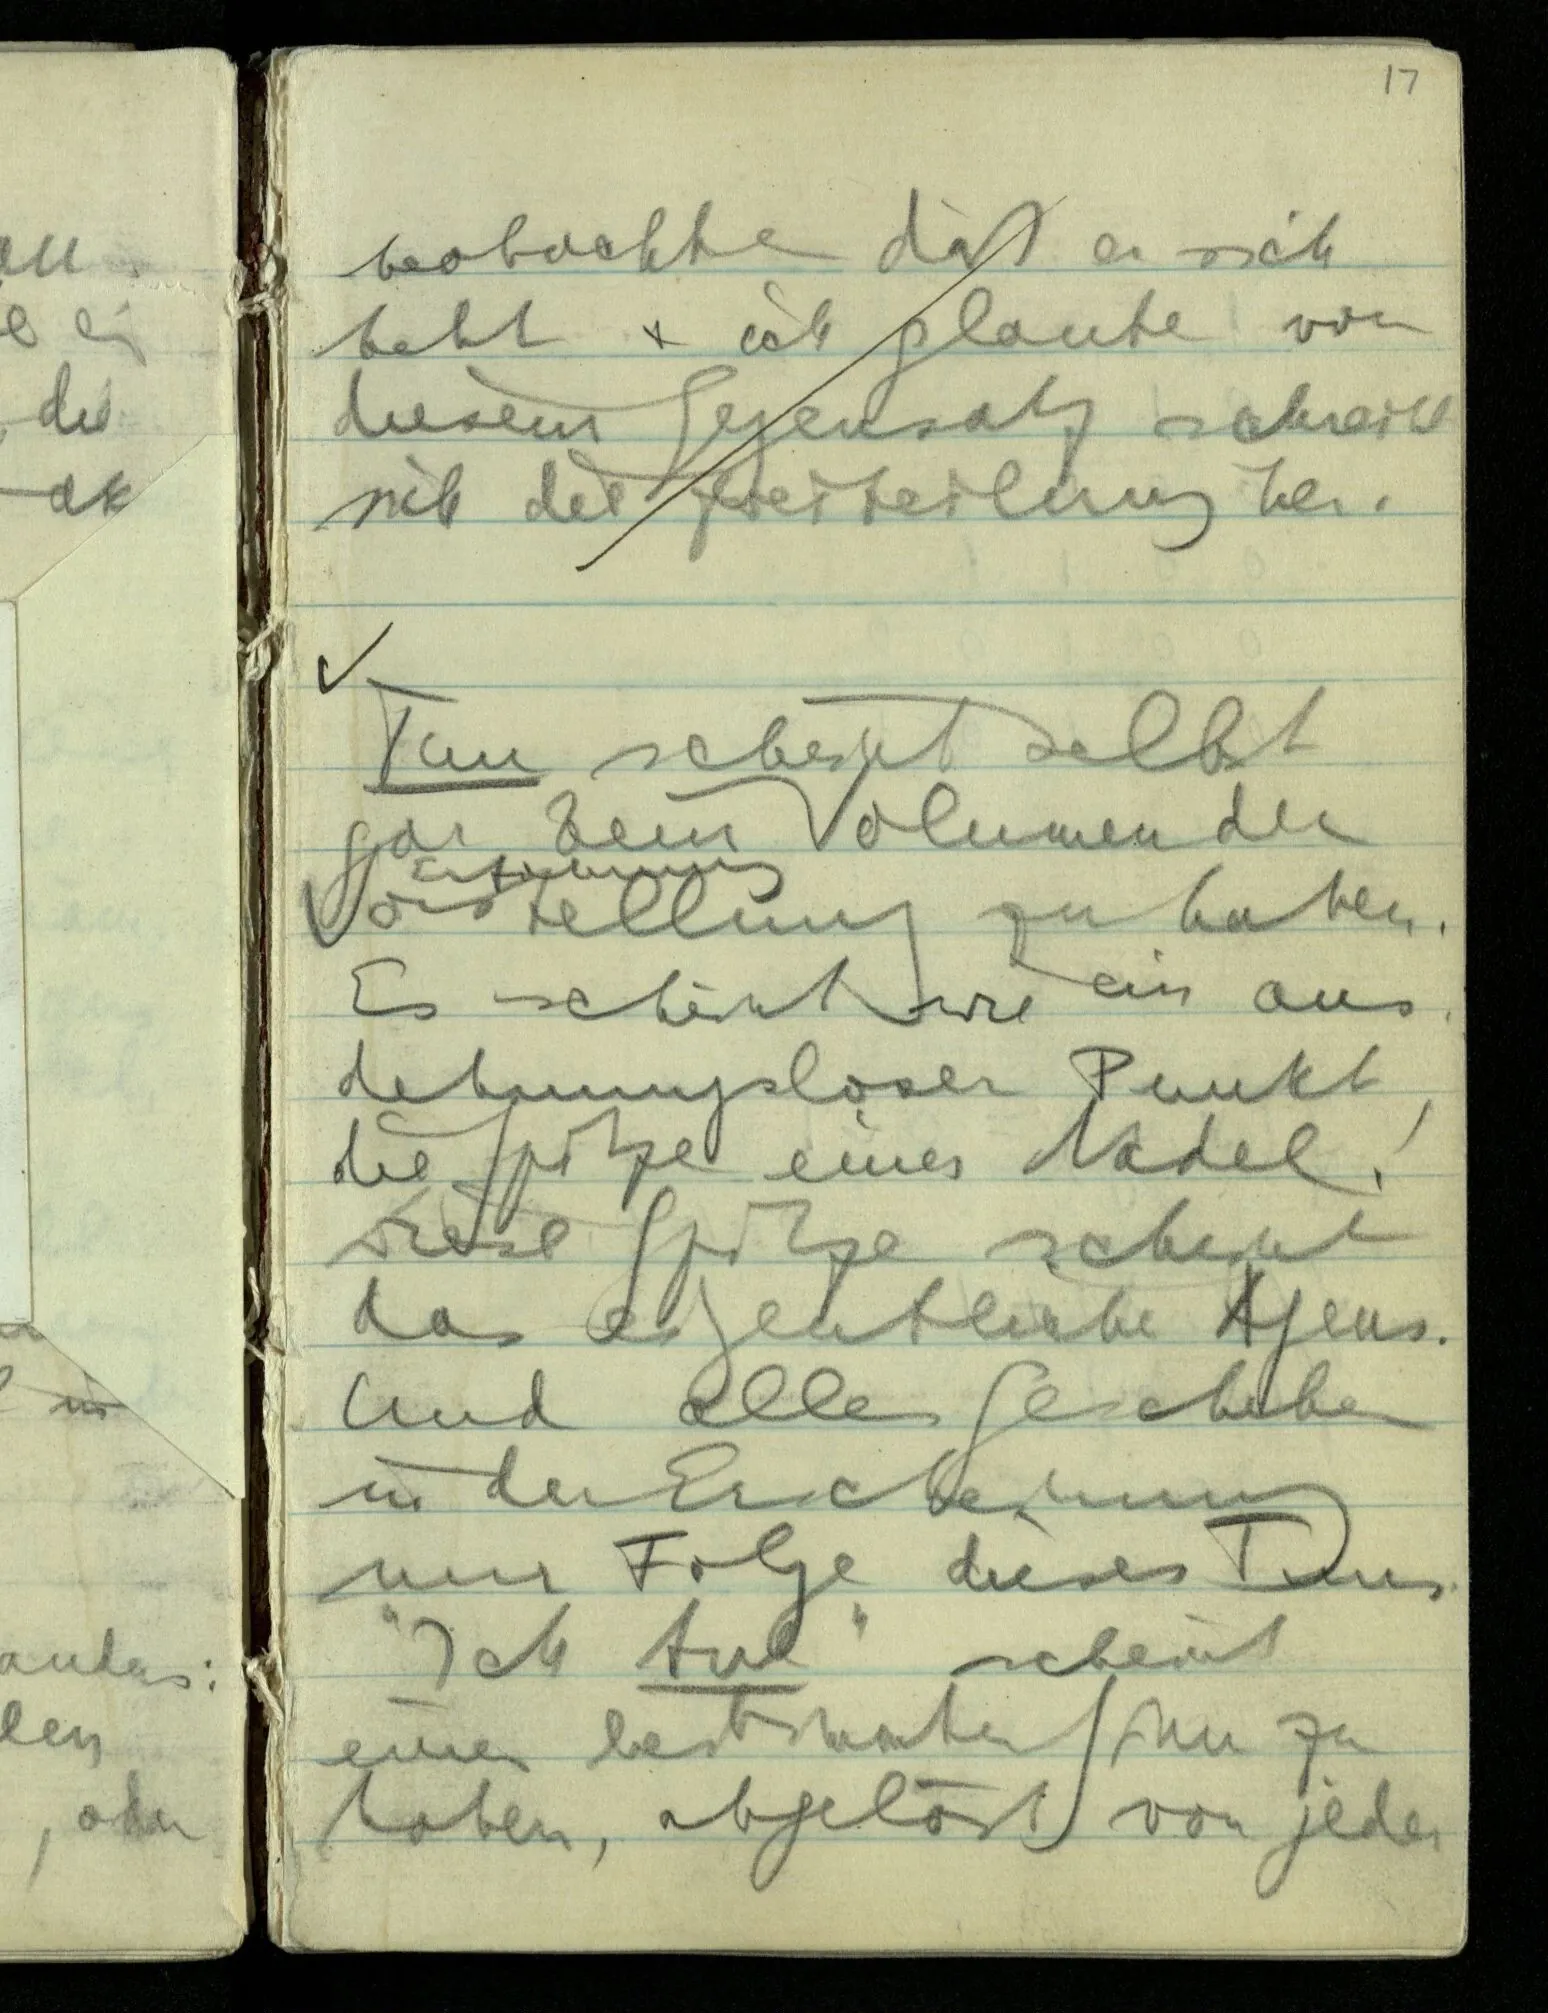 die
, oder
17
beobachte daß er sich
hebt + ich glaube von
diesem Gegensatz schreibt
sich die Zweiteilung her.
Tun scheint selbst
gar kein Volumen der
Erfahrung
Vorstellung zu haben.
Es scheint wie ein aus-
dehnungsloser Punkt,
die Spitze einer Nadel!
Diese Spitze scheint
das eigentliche Agens.
Und alles Geschehen
in der Erscheinung
nur Folge dieses Tuns.
"Ich tue" scheint
einen bestimmten Sinn zu
haben, abgelöst von jeder